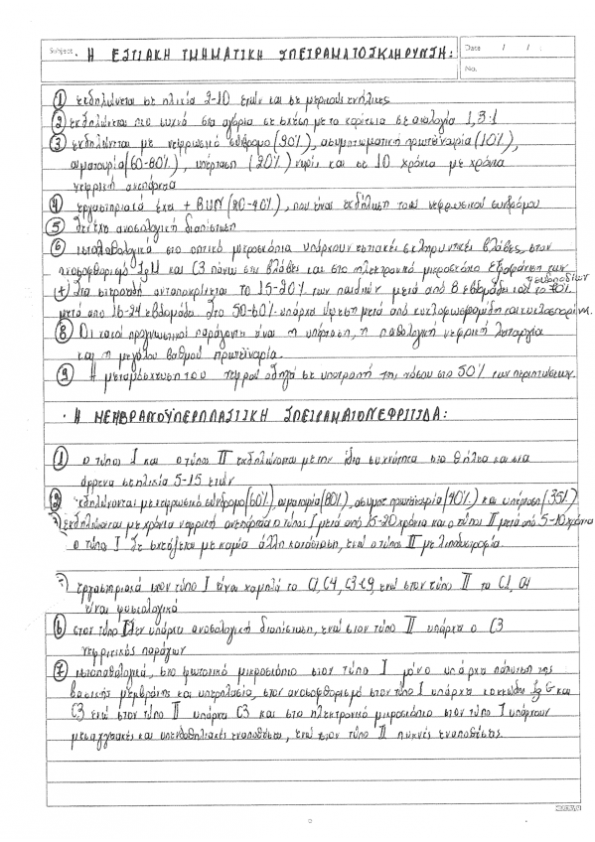 Subject: · Η ΕΣΤΙΑΚΗ ΤΜΗΜΑΤΙΚΗ ΣΠΕΙΡΑΜΑΤΟΣΚΛΗΡΥΝΣΗ:
Date / /
No.
① εκδηλώνεται σε ηλικία 2-10 ετών και σε μερικούς ενήλικες
② εκδηλώνεται πιο συχνά στα αγόρια σε σχέση με τα κορίτσια σε αναλογία 1,3:1
③ εκδηλώνεται με νεφρωσικό σύνδρομο (90%), ασυμπτωματική πρωτεϊνουρία (10%),
αιματουρία (60-80%), υπέρταση (20%) και σε 10 χρόνια με χρόνια
νεφρική ανεπάρκεια
④ εργαστηριακά έχει + BUN (20-40%), που είναι εκδήλωση του νεφρωσικού συνδρόμου
⑤ δεν έχει ανοσολογική διαπίστωση
⑥ ιστολοθολογικά στο οπτικό μικροσκόπιο υπάρχουν εστιακές σκληρυντικές βλάβες, στον
ανοσοφθορισμό IgM και C3 πάνω στις βλάβες και στο ηλεκτρονικό μικροσκόπιο εξαφάνιση των
ψευδοποδίων
⑦ Στα ανταποκρίνεται το 15-20% των παιδιών μετά από 8 εβδομάδες και το 70%
μετά από 16-24 εβδομάδες. Στο 50-60% υπάρχει ύφεση μετά από κυκλοφωσφαμίδη και κυκλοσπορίνη.
⑧ Οι κακοί προγνωστικοί παράγοντες είναι η υπέρταση, η παθολογική νεφρική λειτουργία
και η μεγάλου βαθμού πρωτεϊνουρία.
⑨ Η μεταμόσχευση του νεφρού οδηγεί σε υποτροπή της νόσου στο 50% των περιπτώσεων.
· Η ΜΕΜΒΡΑΝΟΥΠΕΡΠΛΑΣΤΙΚΗ ΣΠΕΙΡΑΜΑΤΟΝΕΦΡΙΤΙΔΑ:
① ο τύπος I και ο τύπος II εκδηλώνονται με την ίδια συχνότητα στα θήλεα και στα
άρρενα σε ηλικία 5-15 ετών
② εκδηλώνονται με νεφρωσικό σύνδρομο (60%), αιματουρία (80%), ασυμπτ πρωτεϊνουρία (40%) και υπέρταση (35%)
εκδηλώνεται με χρόνια νεφρική ανεπάρκεια ο τύπος I μετά από 15-20 χρόνια και ο τύπος II μετά από 5-10 χρόνια
ο τύπος I δε σχετίζεται με καμία άλλη κατάσταση, ενώ ο τύπος II με λιποδυστροφία.
εργαστηριακά στον τύπο I είναι χαμηλά τα C1, C4, C3-C9, ενώ στον τύπο II τα C1, C4
είναι φυσιολογικά
⑥ στον τύπο I δεν υπάρχει ανοσολογική διαπίστωση, ενώ στον τύπο II υπάρχει ο C3
νεφριτικός παράγων
⑦ ιστοπαθολογικά, στο φωτονικό μικροσκόπιο στον τύπο I μόνο υπάρχει πάχυνση της
βασικής μεμβράνης και υπερπλασία, στον ανοσοφθορισμό στον τύπο I υπάρχει IgG και
C3 ενώ στον τύπο II υπάρχει C3 και στο ηλεκτρονικό μικροσκόπιο στον τύπο I υπάρχουν
μεσαγγειακές και υπενδοθηλιακές εναποθέσεις, ενώ στον τύπο II πυκνές εναποθέσεις.